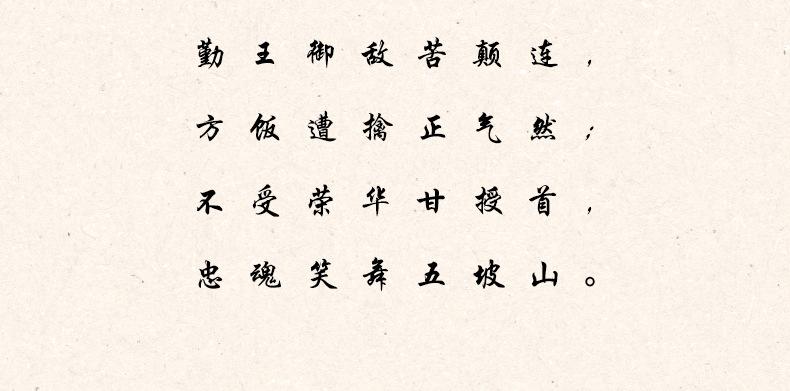 勤王御敌苦颠连，
方饭遭擒正气然；
不受荣华甘授首，
忠魂笑舞五坡山。